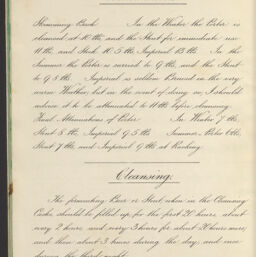 Skimming Back. In the Winter the Porter is
cleansed at 10 lbs, and the Stout for immediate use
11 lbs, and Stock 10.5 lbs, Imperial 13 lbs. In the
Summer the Porter is carried to 9 lbs, and the Stout
to 9.5 lbs. Imperial is seldom Brewed in the very
warm Weather, but in the event of doing so, I should
advise it to be attenuated to 11 lbs before cleansing.
Final Attenuations of Porter In Winter 7 lbs,
Stout 8 lbs, Imperial 9.5 lbs. Summer, Porter 6 lbs,
Stout 7 lbs, and Imperial 9 lbs at Racking.
Cleansing.
The fermenting Beer or Stout when in the Cleansing
Casks, should be filled up, for the first 20 hours, about
every 2 hours, and every 3 hours for about 20 hours more,
and then about 3 times during the day, and once
during the third night.